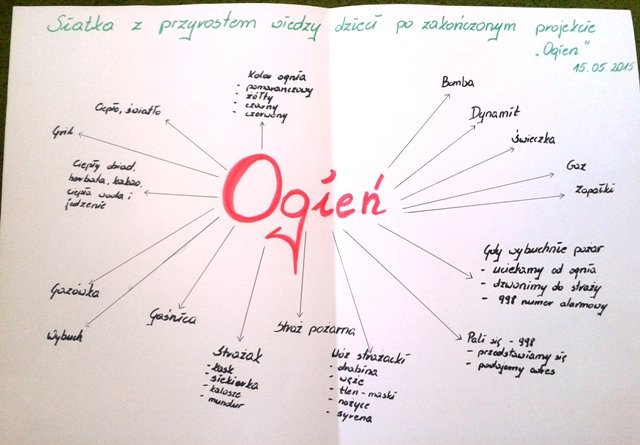 Siatka z przyrostem wiedzy dzieci po zakończonym projekcie
„Ogień”
15.05.2015
Kolor ognia
- pomarańczowy
- żółty
- czarny
- czerwony
Bomba
Dynamit
Świeczka
Gaz
Zapałki
Ciepło, światło
Gril
Ciepły obiad,
herbata, kakao,
ciepła woda i
jedzenie
Ogień
Gazówka
Wybuch
Gaśnica
Strażak
- kask
- siekierka
- kalosze
- mundur
Straż pożarna
Wóz strażacki
- drabina
- węże
- tlen - maski
- nożyce
- syrena
Gdy wybuchnie pożar
- uciekamy od ognia
- dzwonimy do straży
- 998 numer alarmowy
Pali się - 998
- przedstawiamy się
- podajemy adres